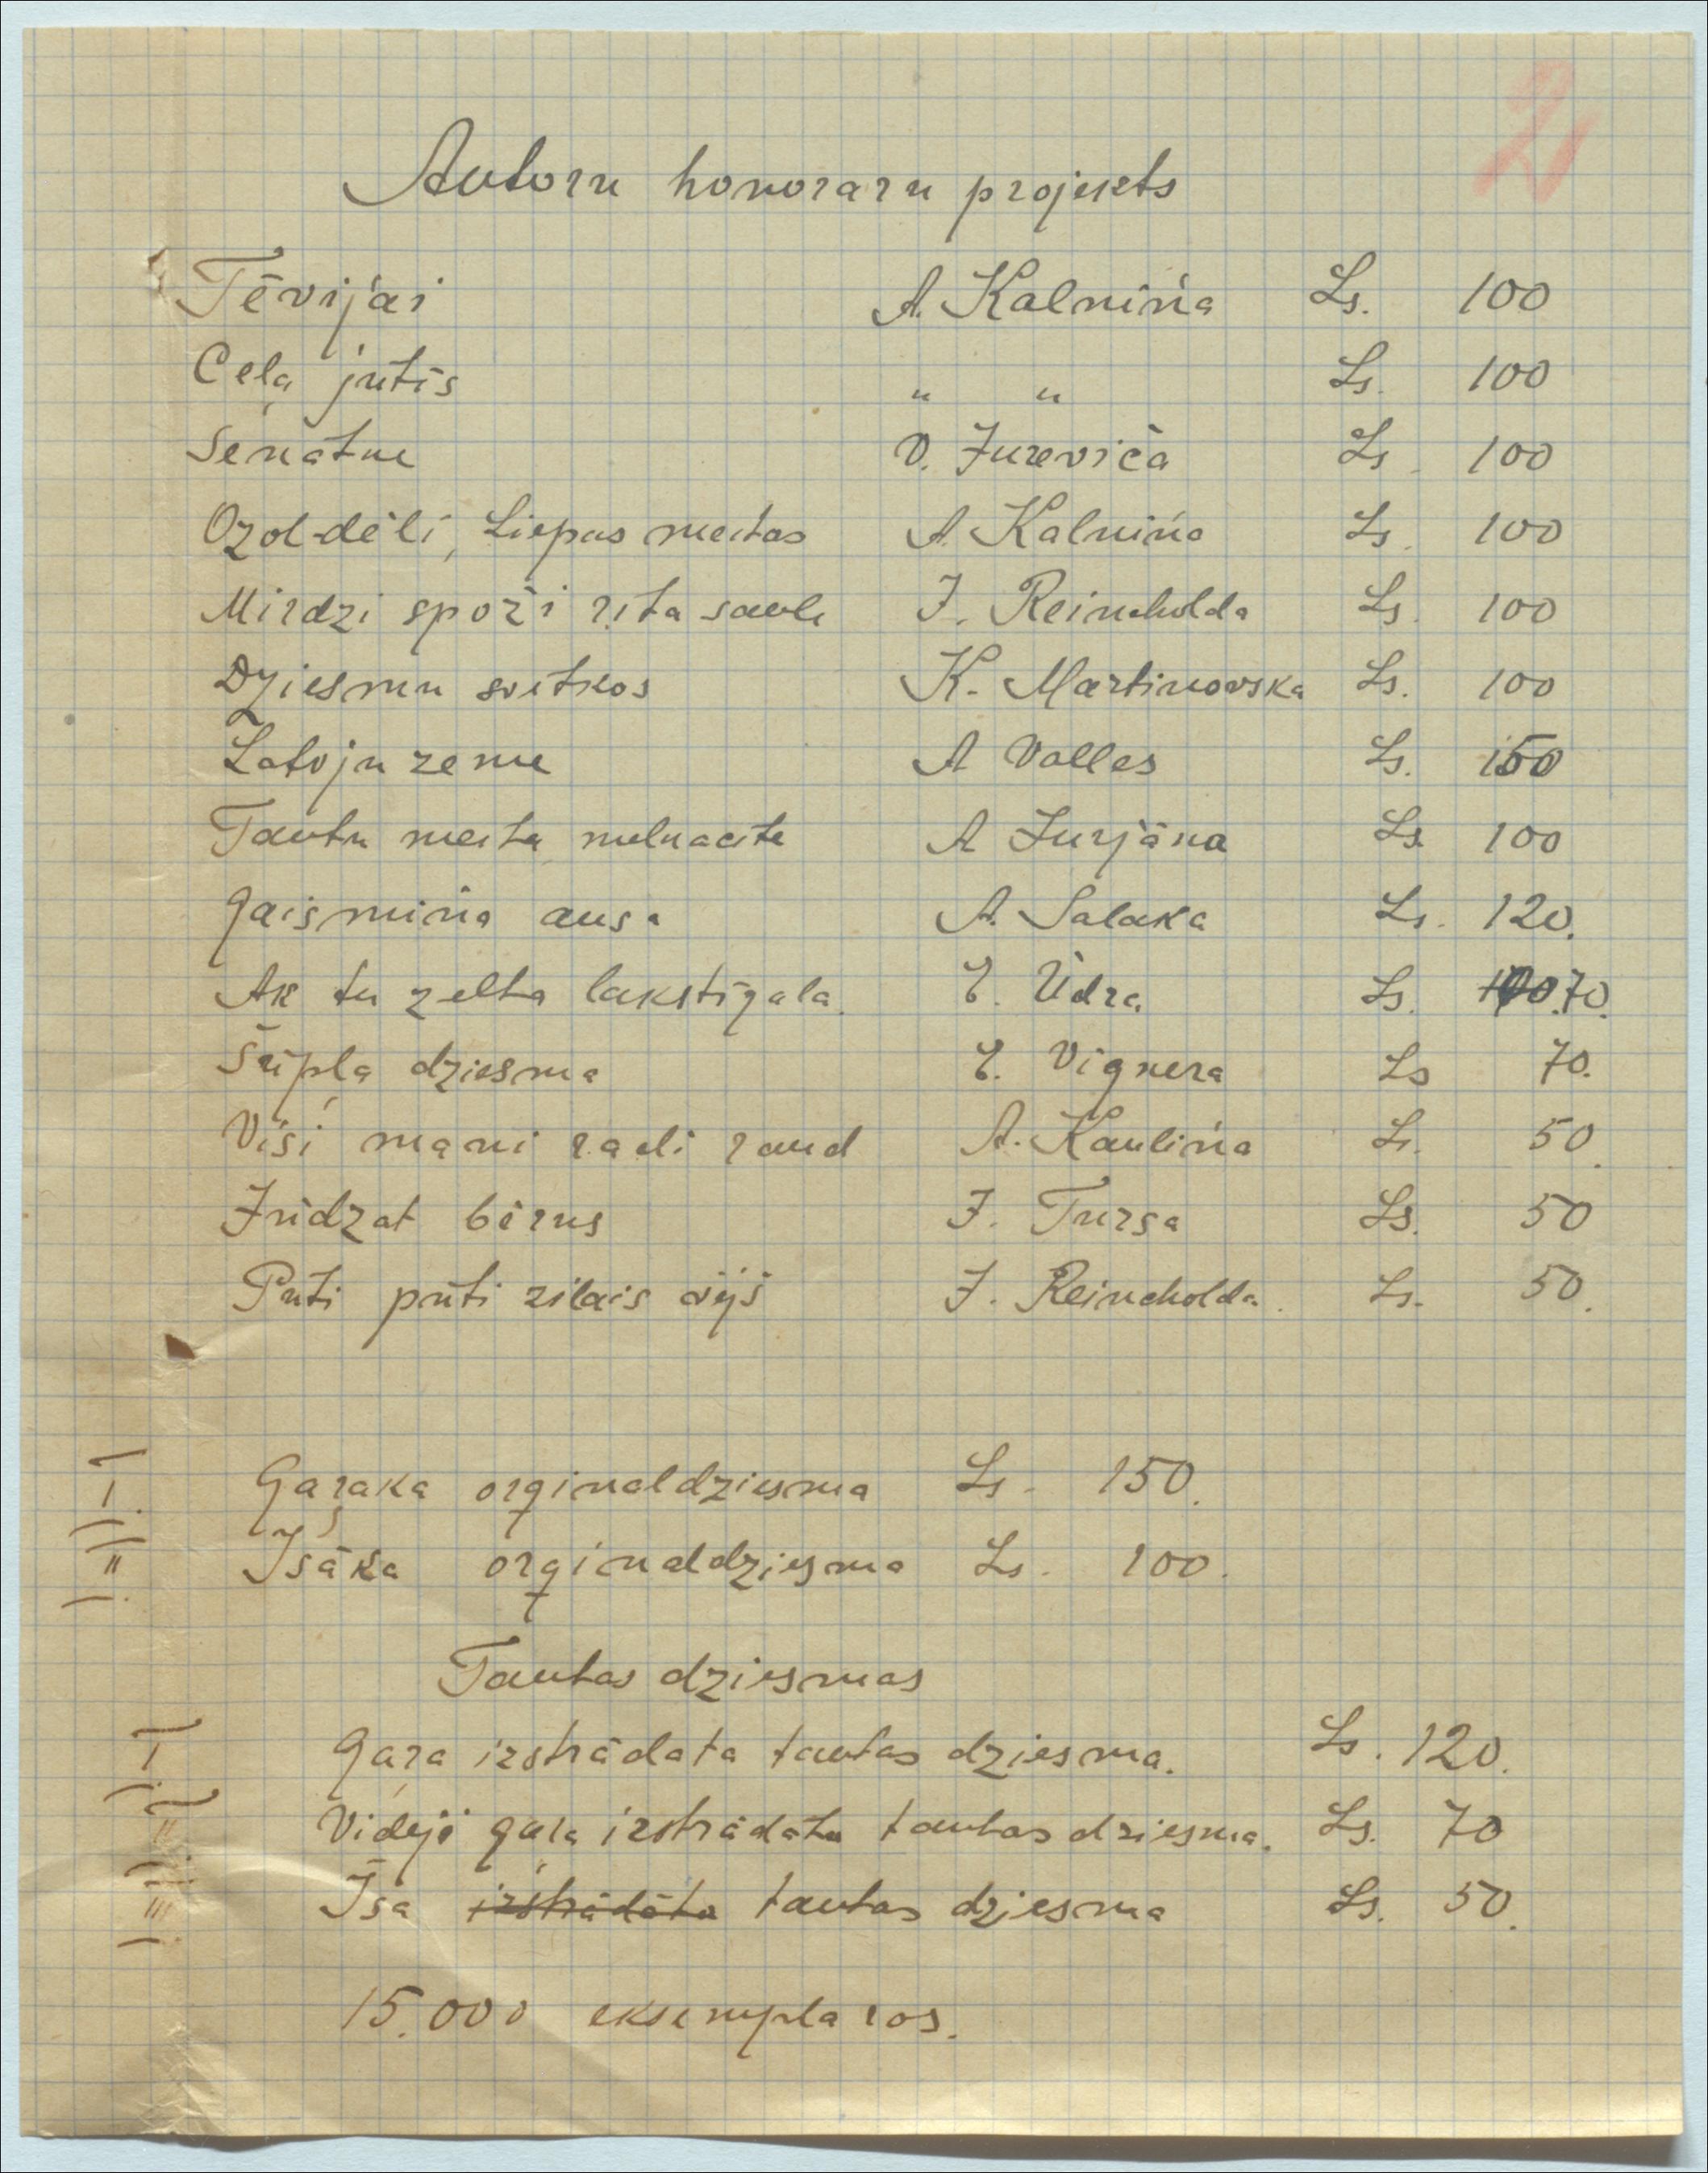 2
Autoru honoraru projekts
Tēvijai A. Kalniņa Ls. 100
Ceļa jūtīs " " Ls. 100
Senatne V. Jureviča Ls. 100
Ozol-dēli, Liepas meitas A. Kalniņa Ls. 100
Mirdzi spoži rīta saule J. Reincholda Ls. 100
Dziesmu svētkos K. Martinovska Ls. 100
Latvju zeme A Valles Ls. 150
Tautu meita melnacīte A Jurjāna Ls. 100
Gaismiņa ausa A. Salaka Ls. 120.
Ak tu zelta lakstīgala. E. Ūdra Ls. 100. 70.
Šūpļa dziesma E. Vīgnera Ls 70.
Visi mani radi raud A. Kauliņa Ls. 50.
Jūdzat bērus J. Tursa Ls. 50
Pūti pūti zilais vējš J. Reincholda. Ls. 50.
I. Gaŗaka orģinaldziesma Ls. 150.
II. Īsāka orģinaldziesma Ls. 100.
Tautas dziesmas
I. Gaŗa izstrādata tautas dziesma. Ls. 120.
II. Vidēji gaŗa izstrādata tautas dziesma. Ls. 70
III. Īsa izstrādāta tautas dziesma Ls. 50.
15.000 eksemplaros.